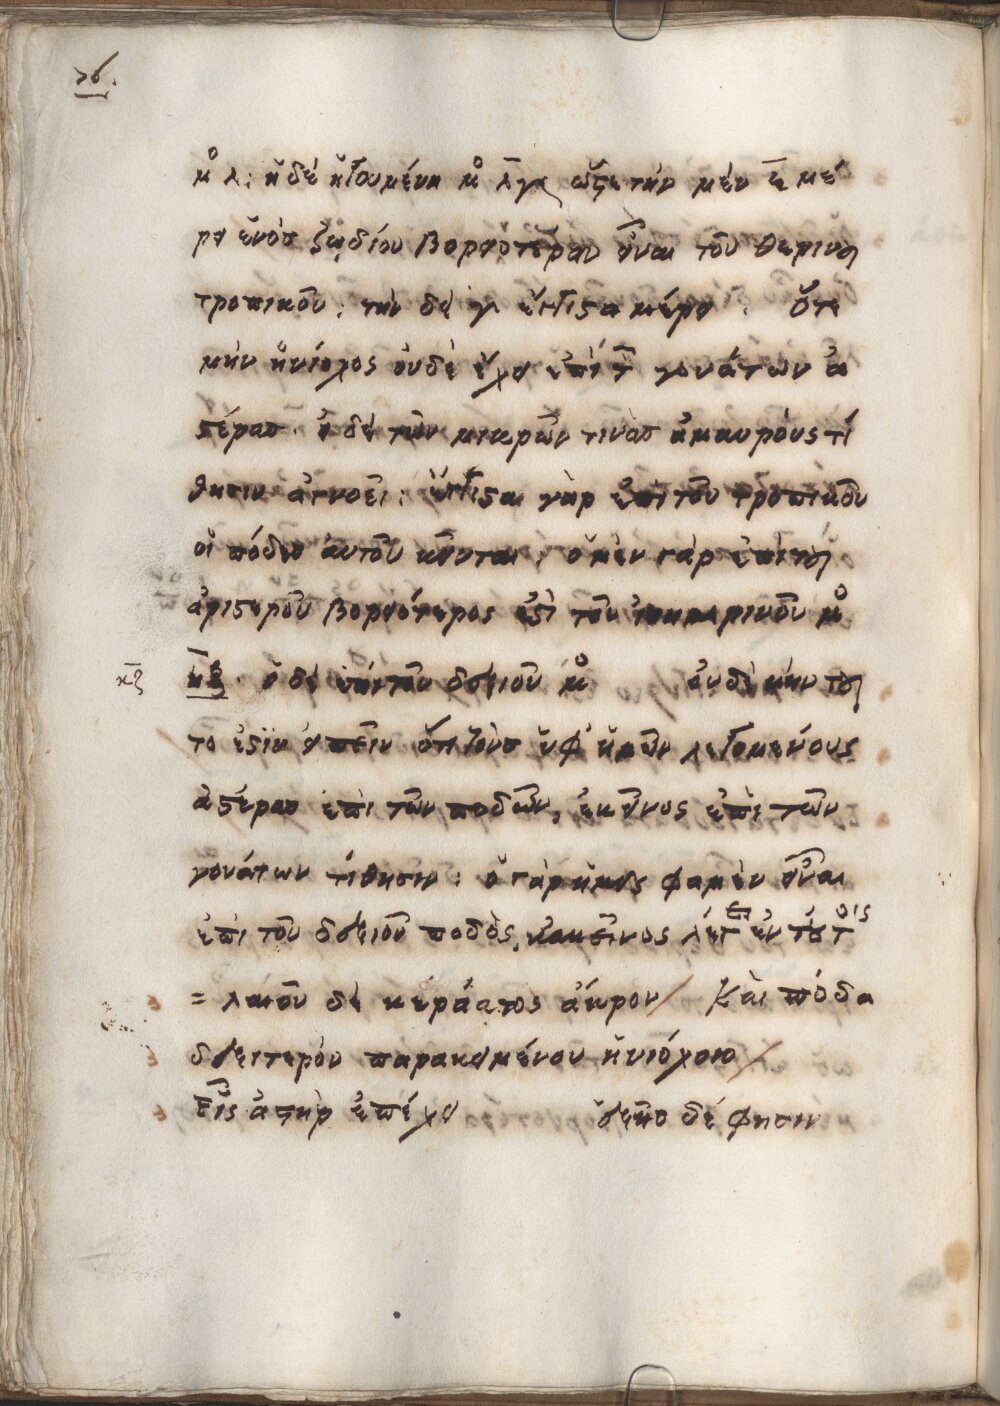 μ̊ λ: ἡ δὲ ἡγουμένη μ̊ λ̅γς ὥστε τὴν μὲν ς̅ μέ
ρει ἑνὸσ ζῳδίου βορειοτέραν εἶναι τοῦ θερινοῦ
τροπικοῦ: τὴν δὲ γ ἔγγιστα μέρει. ὅτι
μὴν ἡνίοχος οὐδὲ ἔχει ἐπὶ τ̅ γονάτων ἀ
στέρασ. εἰ δὲ τῶν μικρῶν τινὰσ ἀμαυρούς τί
θησιν ἀγνοεῖ: ἔγγιστα γὰρ ἐπὶ τοῦ τροπικοῦ
οἱ πόδεσ αὐτοῦ κεῖνται: ὁ μὲν γὰρ ἐπὶ τοῦ
ἀριστεροῦ βορειότερος ἐστὶ τοῦ ἰσημερινοῦ μ̊
κ̅ζ̅ κ̅ζ. ὁ δὲ ἐπὶ τοῦ δεξιοῦ μ̊ οὐδὲ μὴν τοῦ
το ἐστὶν εἰπεῖν ὅτι τοὺσ ὑφ' ἡμῶν λεγομένους
ἀστέρασ ἐπὶ τῶν ποδῶν, ἐκεῖνος ἐπὶ τῶν
γονάτων τίθησιν: ὃ γὰρ ἡμεῖς φαμὲν εἶναι
ἐπὶ τοῦ δεξιοῦ ποδὸς, κἀκεῖνος λέγει ἐν τούτοις
= λαιοῦ δὲ κεράατος ἄκρον / Καὶ πόδα
δεξιτερὸν παρακειμένου ἡνιόχοιο /
Εἷς ἀστὴρ ἐπέχει ἑξῆσ δέ φησιν